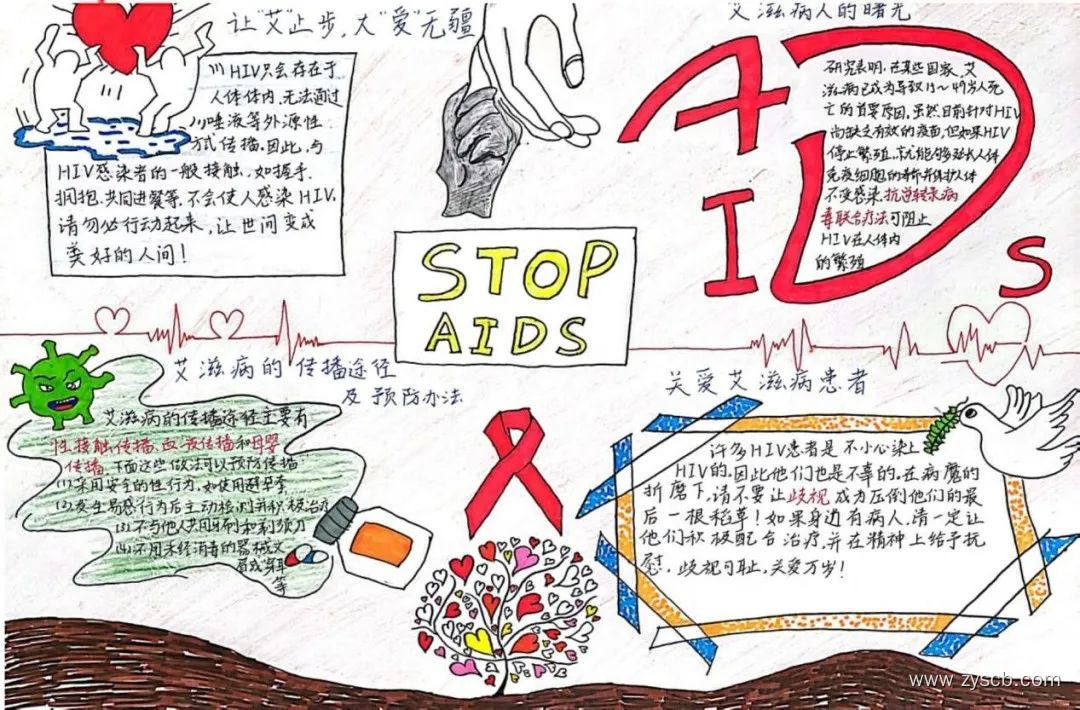 让"艾"止步,大"爱"无疆
HIV只会存在于
人体体内,无法通过
唾液等外源性
方式传播.因此,与
HIV感染者的一般接触,如握手.
拥抱.共同进餐等.不会使人感染HIV.
请勿必行动起来,让世间变成
美好的人间!
艾滋病人的曙光
AIDS
研究表明.在某些国家,艾
滋病已成为导致15～49岁人死
亡的首要原因.虽然目前针对HIV
尚缺乏有效的疫苗,但如果HIV
停止繁殖.就能够延长人体
免疫细胞的寿命并保护人体
不受感染.抗逆转录病
毒联合疗法可阻止
HIV在人体内
的繁殖
STOP
AIDS
艾滋病的传播途径
及预防办法
艾滋病的传播途径主要有
性接触传播.血液传播和母婴
传播.下面这些做法可以预防传播
(1)采用安全的性行为,如使用避孕套
(2)发生易感行为后主动检测并积极治疗
(3)不与他人共用牙刷和剃须刀
(4)不用未经消毒的器械文
眉或穿耳
等
关爱艾滋病患者
许多HIV患者是不小心染上
HIV的.因此他们也是不幸的.在病魔的
折磨下,请不要让歧视成为压倒他们的最
后一根稻草!如果身边有病人,请一定让
他们积极配合治疗,并在精神上给予抚
慰.歧视可耻,关爱万岁!
www.zyscb.com